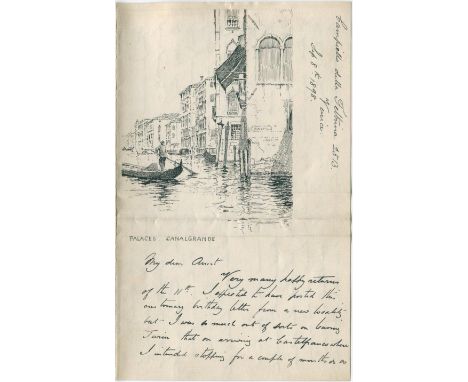 Campiello della Feltrina 2513.
Venice
Sep 8th 1898.
PALACES CANALGRANDE
My dear Aunt
Very many happy returns
of the 11th. I expected to have posted this
customary birthday letter from a new locality
but I was so much out of sorts on leaving
Turin that on arriving at Castelfranco where
I intended stopping for a couple of months or so